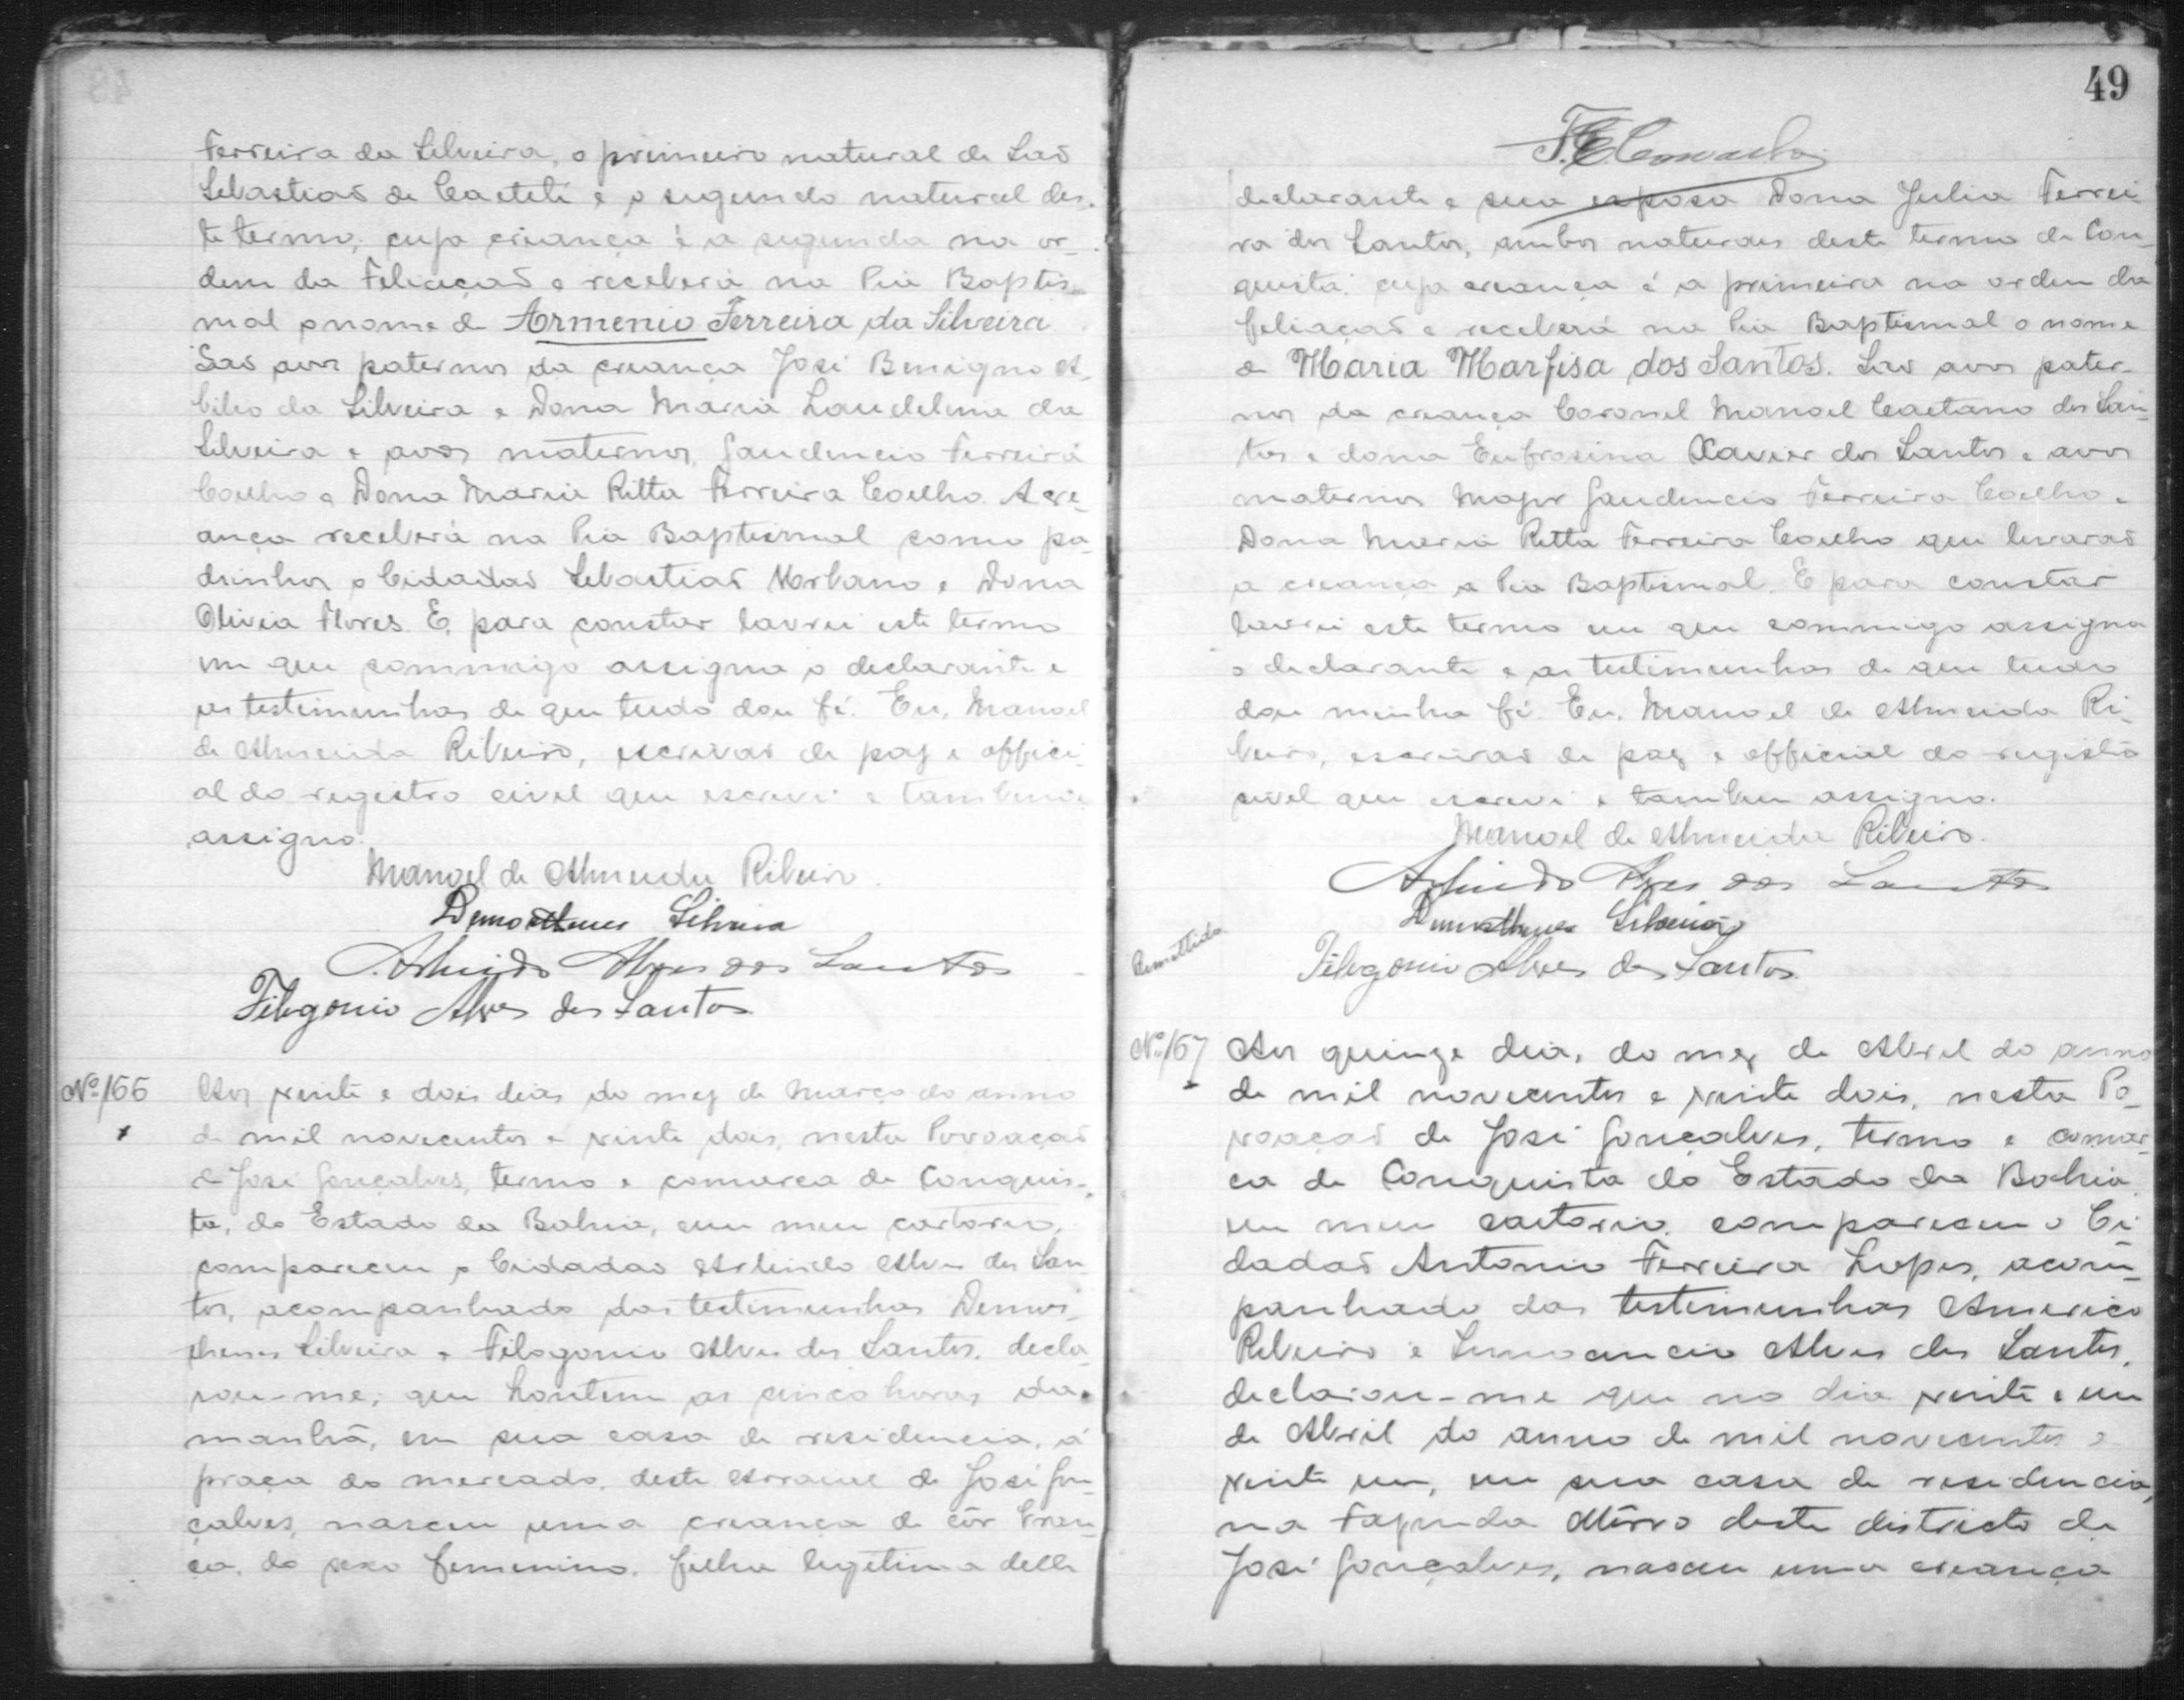 Ferreira da Silveira, o primeiro natural de Saõ
Sebastiaõ de Caeteté e o segundo natural des-
te termo, cuja criança é a segunda na or-
dem da Feliaçaõ e receberá na Pia Baptis-
mal o nome de Armenio Ferreira da Silveira
Saõ avos paternos da creança José Benigno
da Silveira e Dona Maria Laudelina da
Silveira e avos maternos, Gaudencio Ferreira
Coelho e Dona Maria Ritta Ferreira Coelho. A cre-
ança receberá na Pia Baptismal como pa-
drinhos o Cidadaõ Sebastiaõ Urbano e Dona
Olivia Flores. E, para constar lavrei este termo
em que commigo assigna o declarante e
as testimunhas de que tudo dou fé. Eu, Manoel
de Almeida Ribeiro, escrivaõ de paz e offici-
al do registro civel que escrevi e tambem
assigno.
Manoel de Almeida Ribeiro.
Demosthenes Silveira
Arlindo Alves dos Santos
Filogonio Alves dos Santos
Nº 166
Aos vinte e dois dias do mez de Março do anno
de mil novecentos e vinte dois, nesta Povoaçaõ
de José Gonçalves, termo e comarca de Conquis-
ta, do Estado da Bahia, em meu cartorio,
compareceu o Cidadaõ Arlindo Alves dos San-
tos, acompanhado das testimunhas Demos-
thenes Silveira e Filogonio Alves dos Santos, decla-
rou-me, que hontem as cinco horas da
manhã, em sua casa de residencia, á
praça do mercado, deste Arraial de José Gon-
çalves, nasceu uma creança de côr bran-
ca, do sexo femenino, filha legitima delle
49
declarante e sua esposa Dona Julia Ferrei
ra dos Santos, ambos naturaes deste termo de Con-
quista, cuja creança é a primeira na ordem da
feliaçaõ e receberá na Pia Baptismal o nome
de Maria Marfisa dos Santos. Saõ avos pater-
nos da creança Coronel Manoel Caetano dos San-
tos e dona Eufrosina Xavier dos Santos e avos
maternos Major Gaudencio Ferreira Coelho e
Dona Maria Ritta Ferreira Coelho que levaraõ
a creança a Pia Baptismal. E para constar
lavrei este termo em que commigo assigna
o declarante e as testimunhas de que tudo
dou minha fé. Eu, Manoel de Almeida Ri-
beiro, escrivaõ de paz e official do registro
civel que escrevi e tambem assigno.
Manoel de Almeida Ribeiro.
Arlindo Alves dos Santos
Demosthenes Silveira
Filogonio Alves dos Santos
Remettida
Nº 167
Aos quinze dias do mez de Abril do anno
de mil novecentos e vinte dois, nesta Po-
voaçaõ de José Gonçalves, termo e comar-
ca de Conquista do Estado da Bahia
em meu cartorio, compareceu o Ci-
dadaõ Antonio Ferreira Lopes, acom-
panhado das testimunhas Americo
Ribeiro e Alves dos Santos,
declarou-me que no dia vinte e um
de Abril do anno de mil novecentos e
vinte um, em sua casa de residencia,
na Fazenda Môrro deste districto de
José Gonçalves, nasceu uma creança